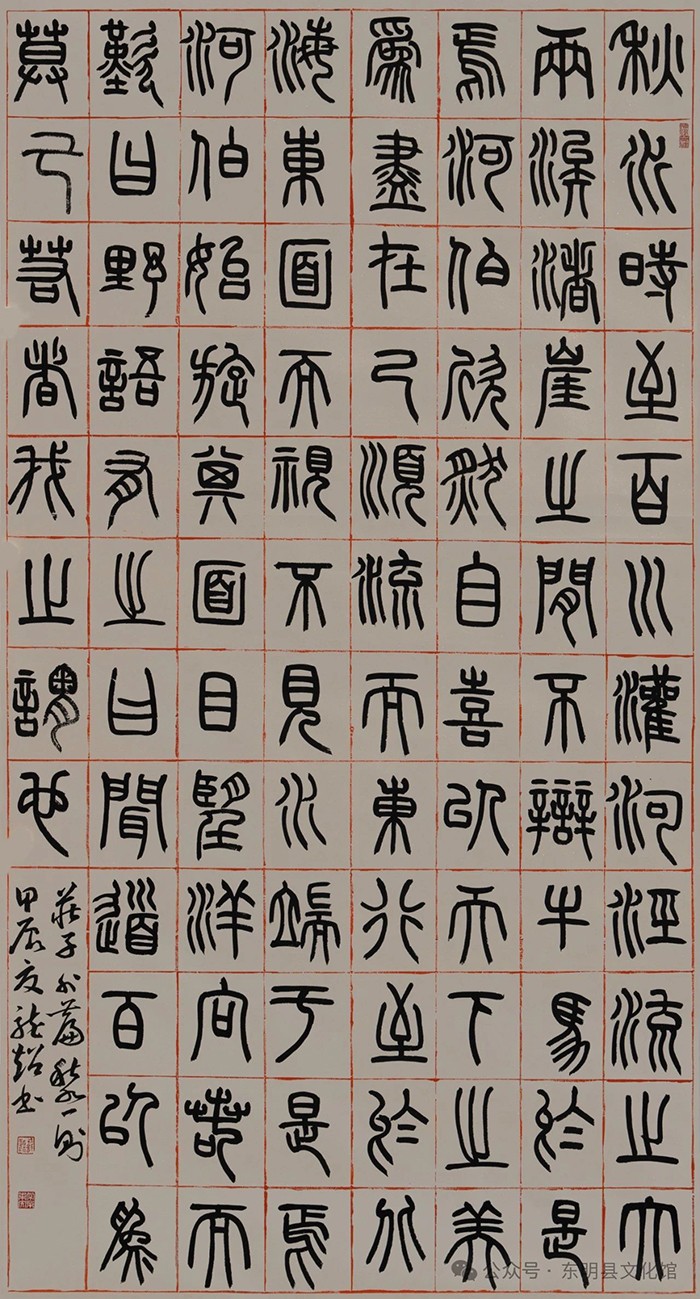 秋水時至百川灌河涇流之大
兩涘渚崖之間不辯牛馬於是
焉河伯欣然自喜以天下之美
爲盡在己順流而東行至於北
海東面而視不見水端于是焉
河伯始旋其面目望洋向若而
歎曰野語有之曰聞道百以爲
莫己若者我之謂也
莊子外篇秋水一則
甲辰夏龍書
公众号·东明县文化馆